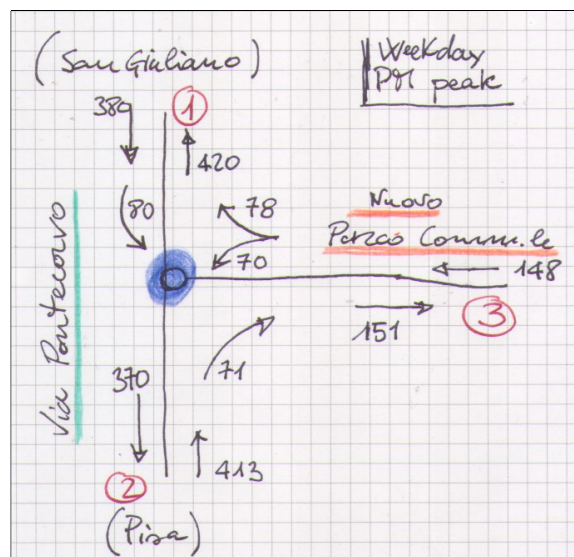 (San Giuliano)
Weekday
PM peak
380
1
420
80
78
Nuovo
Parco Comm.le
70
148
3
151
Via Pontecorvo
71
370
413
2
(Pisa)